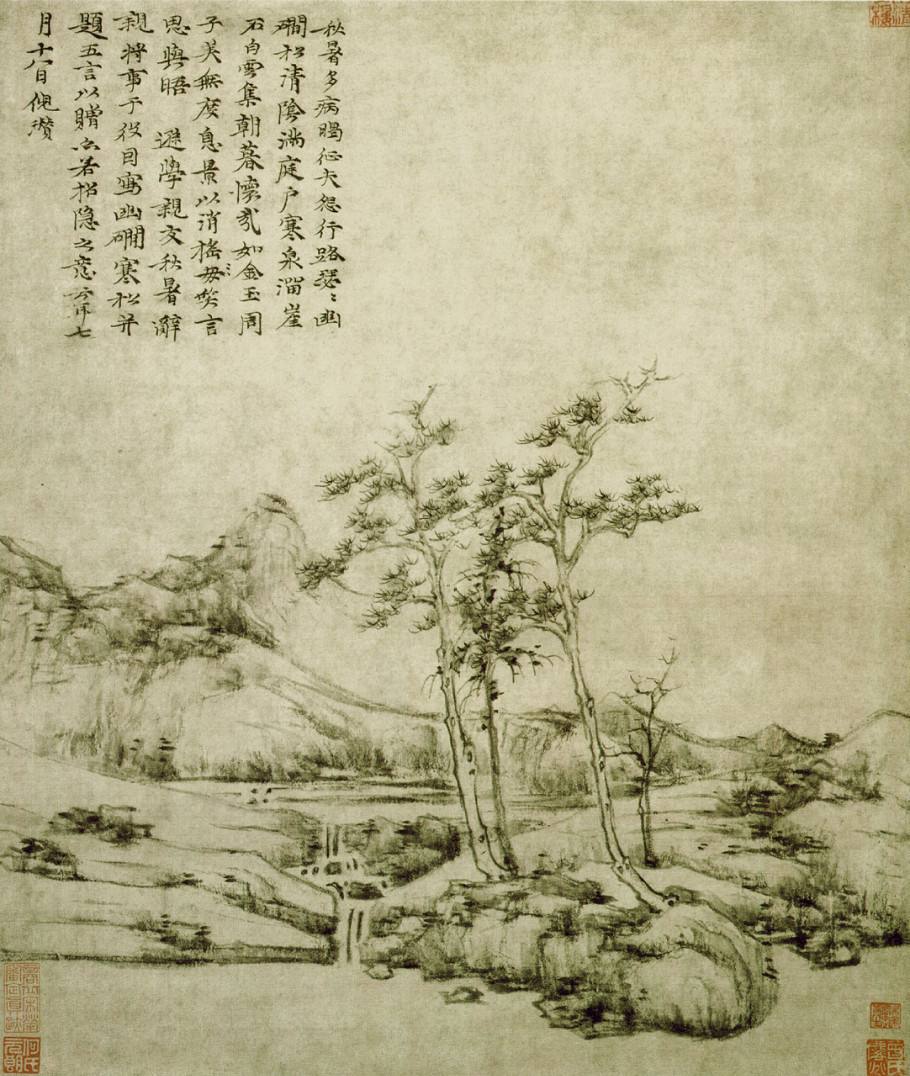 秋暑多病暍征夫怨行路瑟〻幽
磵松清陰滿庭戶寒泉溜崖
石白雲集朝暮懷哉如金玉周
子美無度息景以消搖毋笑言
思與晤 遜學親友秋暑辭
親將事于役因寫幽磵寒松并
題五言以贈亦若招隱之意云耳七
月十八日倪瓚
何氏
元朗